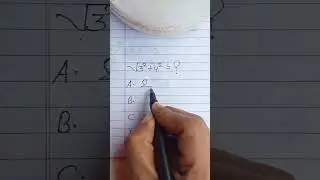 √3²+4² = ?
A.
B.
C.